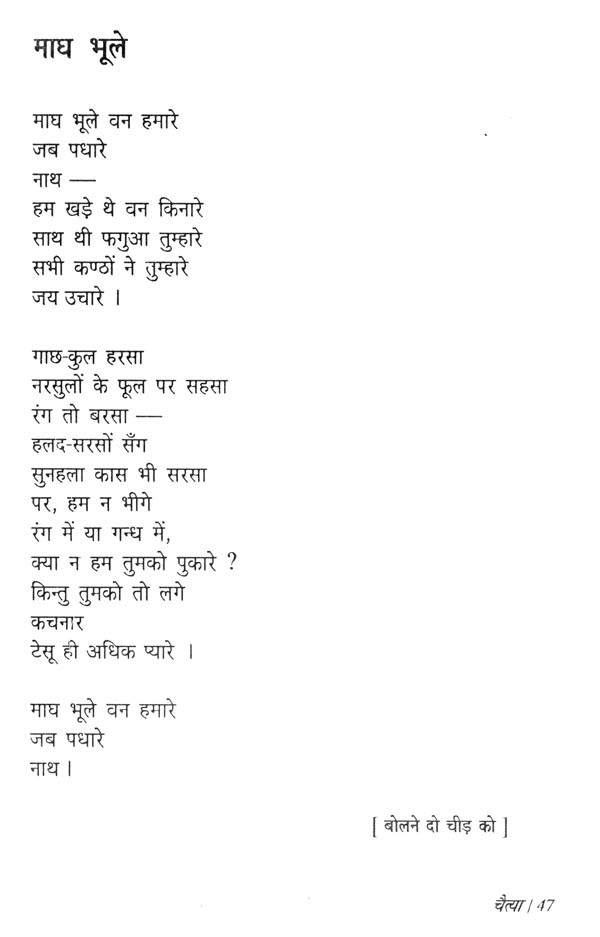 माघ भूले
माघ भूले वन हमारे
जब पधारे
नाथ —
हम खड़े थे वन किनारे
साथ थी फगुआ तुम्हारे
सभी कण्ठों ने तुम्हारे
जय उचारे ।
गाछ-कुल हरसा
नरसुलों के फूल पर सहसा
रंग तो बरसा —
हलद-सरसों सँग
सुनहला कास भी सरसा
पर, हम न भीगे
रंग में या गन्ध में,
क्या न हम तुमको पुकारे ?
किन्तु तुमको तो लगे
कचनार
टेसू ही अधिक प्यारे ।
माघ भूले वन हमारे
जब पधारे
नाथ ।
[ बोलने दो चीड़ को ]
चैत्या / 47